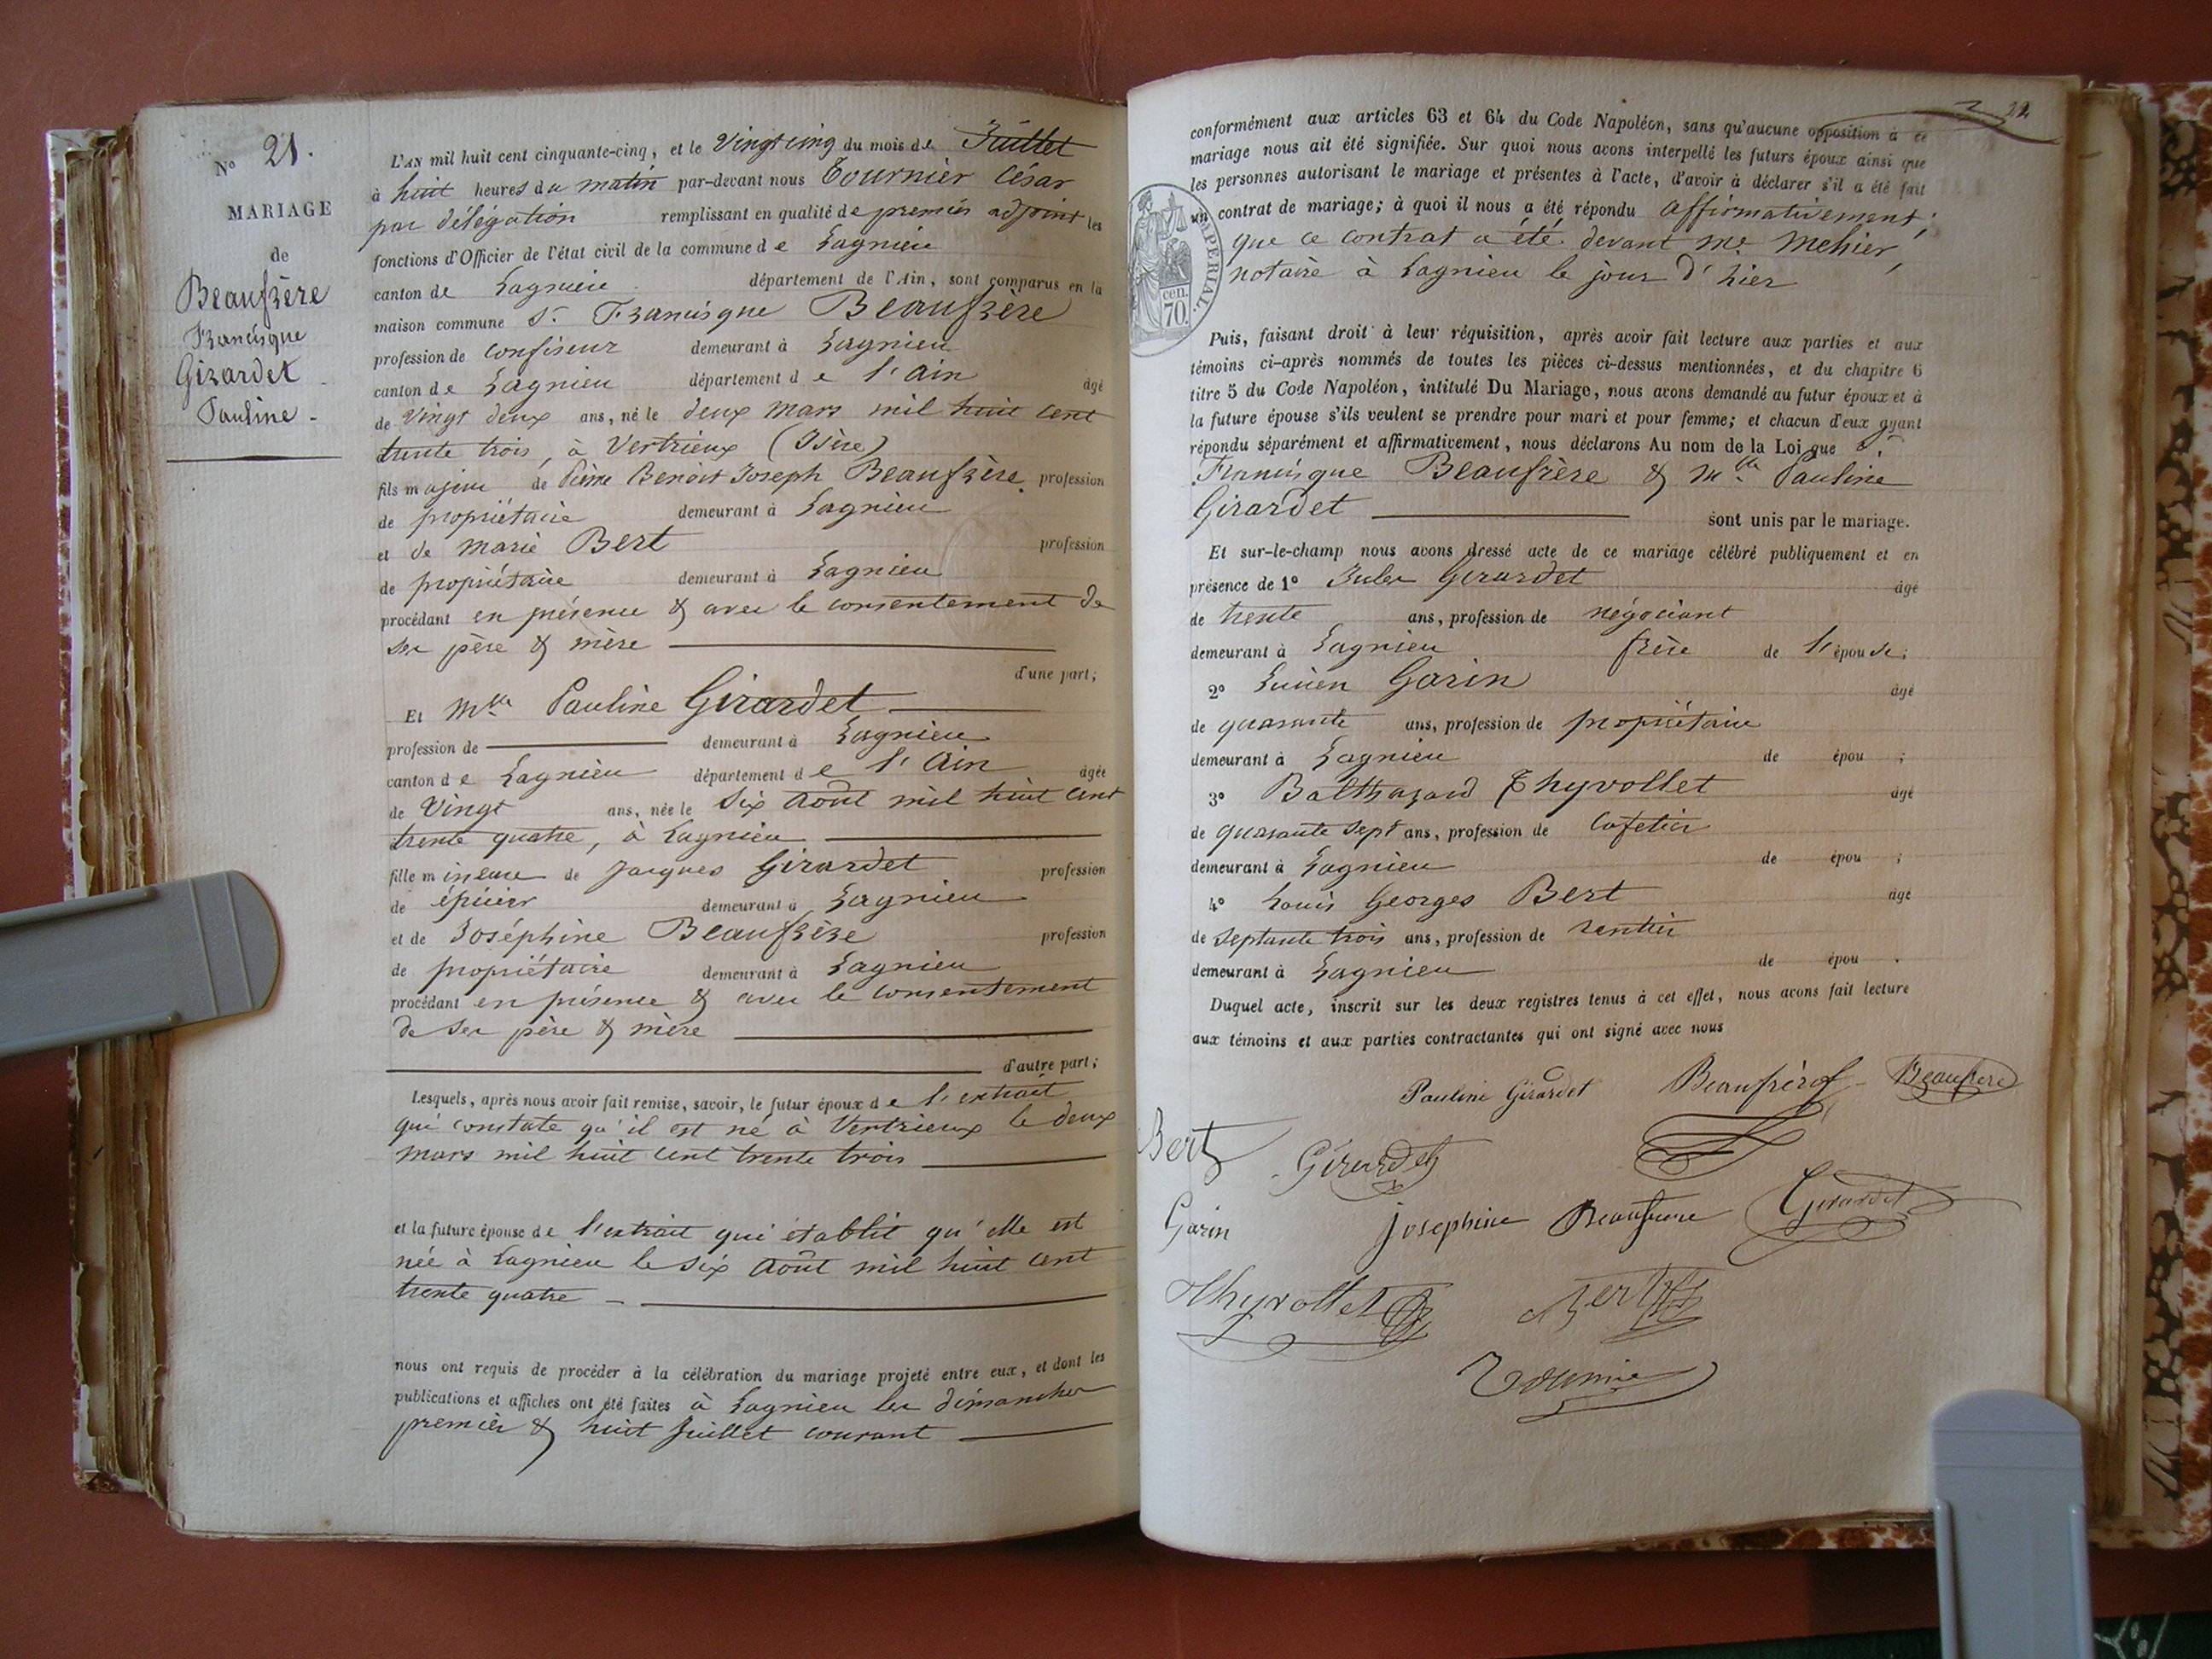 N° 21.
MARIAGE
de
Beaufrère
Francisque
Girardet
Pauline
L'AN mil huit cent cinquante-cinq, et le Vingt cinq du mois de Juillet
à huit heures du matin par-devant nous Tournier César
par délégation remplissant en qualité de premier adjoint les
fonctions d'Officier de l'état civil de la commune de Lagnieu
canton de Lagnieu département de l'Ain, sont comparus en la
maison commune Sr. Francisque Beaufrère
profession de confiseur demeurant à Lagnieu
canton de Lagnieu département de l'Ain âgé
de vingt deux ans, né le deux mars mil huit cent
trente trois, à Vertrieux (Isère)
fils majeur de Pierre Benoit Joseph Beaufrère profession
de propriétaire demeurant à Lagnieu
et de marie Bert profession
de propriétaire demeurant à Lagnieu
procédant en présence & avec le consentement de
ses père & mère
d'une part;
Et Mlle Pauline Girardet
profession de demeurant à Lagnieu
canton de Lagnieu département de l'Ain âgée
de Vingt ans, née le six Août mil huit cent
trente quatre, à Lagnieu
fille mineure de Jacques Girardet profession
de épicier demeurant à Lagnieu
et de Joséphine Beaufrère profession
de propriétaire demeurant à Lagnieu
procédant en présence & avec le consentement
de ses père & mère
d'autre part;
Lesquels, après nous avoir fait remise, savoir, le futur époux de l'extrait
qui constate qu'il est né à Vertrieux le deux
mars mil huit cent trente trois
et la future épouse de l'extrait qui établit qu'elle est
née à Lagnieu le six Août mil huit cent
trente quatre
nous ont requis de procéder à la célébration du mariage projeté entre eux, et dont les
publications et affiches ont été faites à Lagnieu les dimanches
premier & huit Juillet courant
22
conformément aux articles 63 et 64 du Code Napoléon, sans qu'aucune opposition à ce
mariage nous ait été signifiée. Sur quoi nous avons interpellé les futurs époux ainsi que
les personnes autorisant le mariage et présentes à l'acte, d'avoir à déclarer s'il a été fait
un contrat de mariage; à quoi il nous a été répondu affirmativement;
que ce contrat a été devant Me. Mehier,
notaire à Lagnieu le jour d'hier
IMPERIAL.
cen.
70.
Puis, faisant droit à leur réquisition, après avoir fait lecture aux parties et aux
témoins ci-après nommés de toutes les pièces ci-dessus mentionnées, et du chapitre 6
titre 5 du Code Napoléon, intitulé Du Mariage, nous avons demandé au futur époux et à
la future épouse s'ils veulent se prendre pour mari et pour femme; et chacun d'eux ayant
répondu séparément et affirmativement, nous déclarons Au nom de la Loi que Sr.
Francisque Beaufrère & Mlle Pauline
Girardet sont unis par le mariage.
Et sur-le-champ nous avons dressé acte de ce mariage célébré publiquement et en
présence de 1° Jules Girardet âgé
de trente ans, profession de négociant
demeurant à Lagnieu frère de l'épouse;
2° Lucien Garin âgé
de quarante ans, profession de propriétaire
demeurant à Lagnieu de épou ;
3° Balthazard Thyvollet âgé
de quarante sept ans, profession de Cafetier
demeurant à Lagnieu de épou ;
4° Louis Georges Bert âgé
de septante trois ans, profession de rentier
demeurant à Lagnieu de épou .
Duquel acte, inscrit sur les deux registres tenus à cet effet, nous avons fait lecture
aux témoins et aux parties contractantes qui ont signé avec nous
Pauline Girardet Beaufrère Beaufrère
Bert Girardet
Garin Josephine Beaufrere Girardet
Thyvollet Bert
Tournier